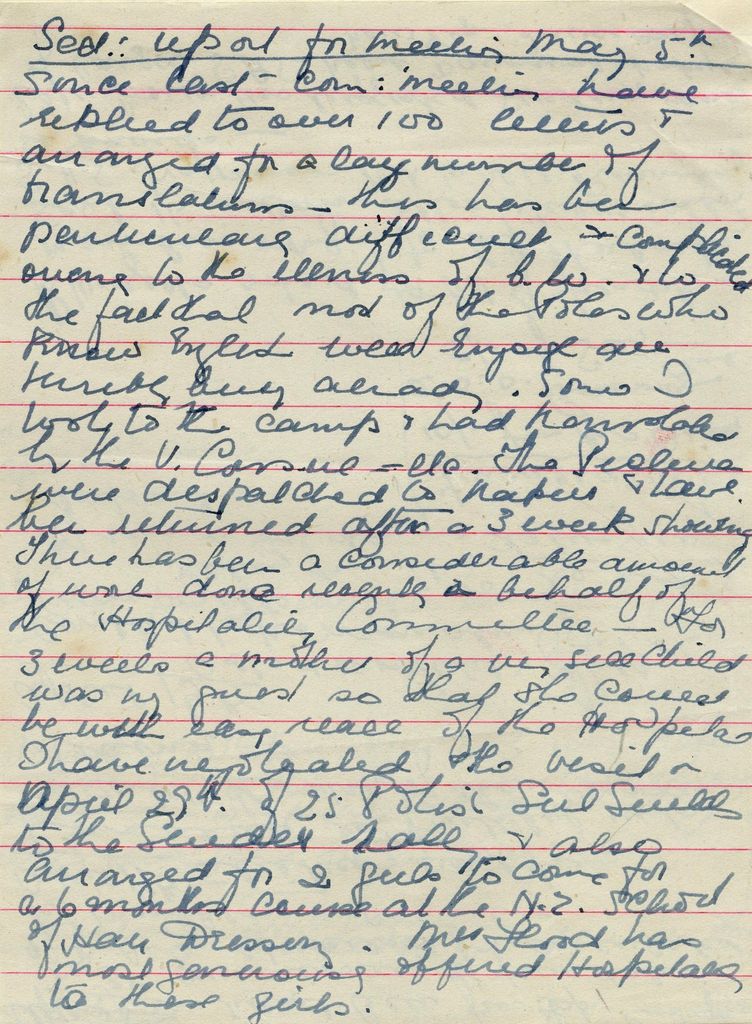 Sec.: report for meeting May 5th
Since last com: meeting have
replied to over 100 letters &
arranged for a large number of
translations – this has been
particularly difficult & complicated
owing to the illness of & to
the fact that most of the Poles who
know English well enough are
terribly busy already. Some I
took to the camp & had translated
by the V. Consul – etc. The
were despatched to Napier & have
been returned after a 3 week showing
There has been a considerable amount
of work done recently on behalf of
the Hospitality Committee – For
3 weeks a mother of a very sick child
was my guest so that she could
be with easy reach of the Hospital
I have negotiated the visit on
April 29th. of 25 Polish Girl Guides
to the rally & also
arranged for 2 girls to come for
a 6 months course at the N.Z. School
of Hair Dressing. Mrs Flood has
most generously offered Hospitality
to these girls.